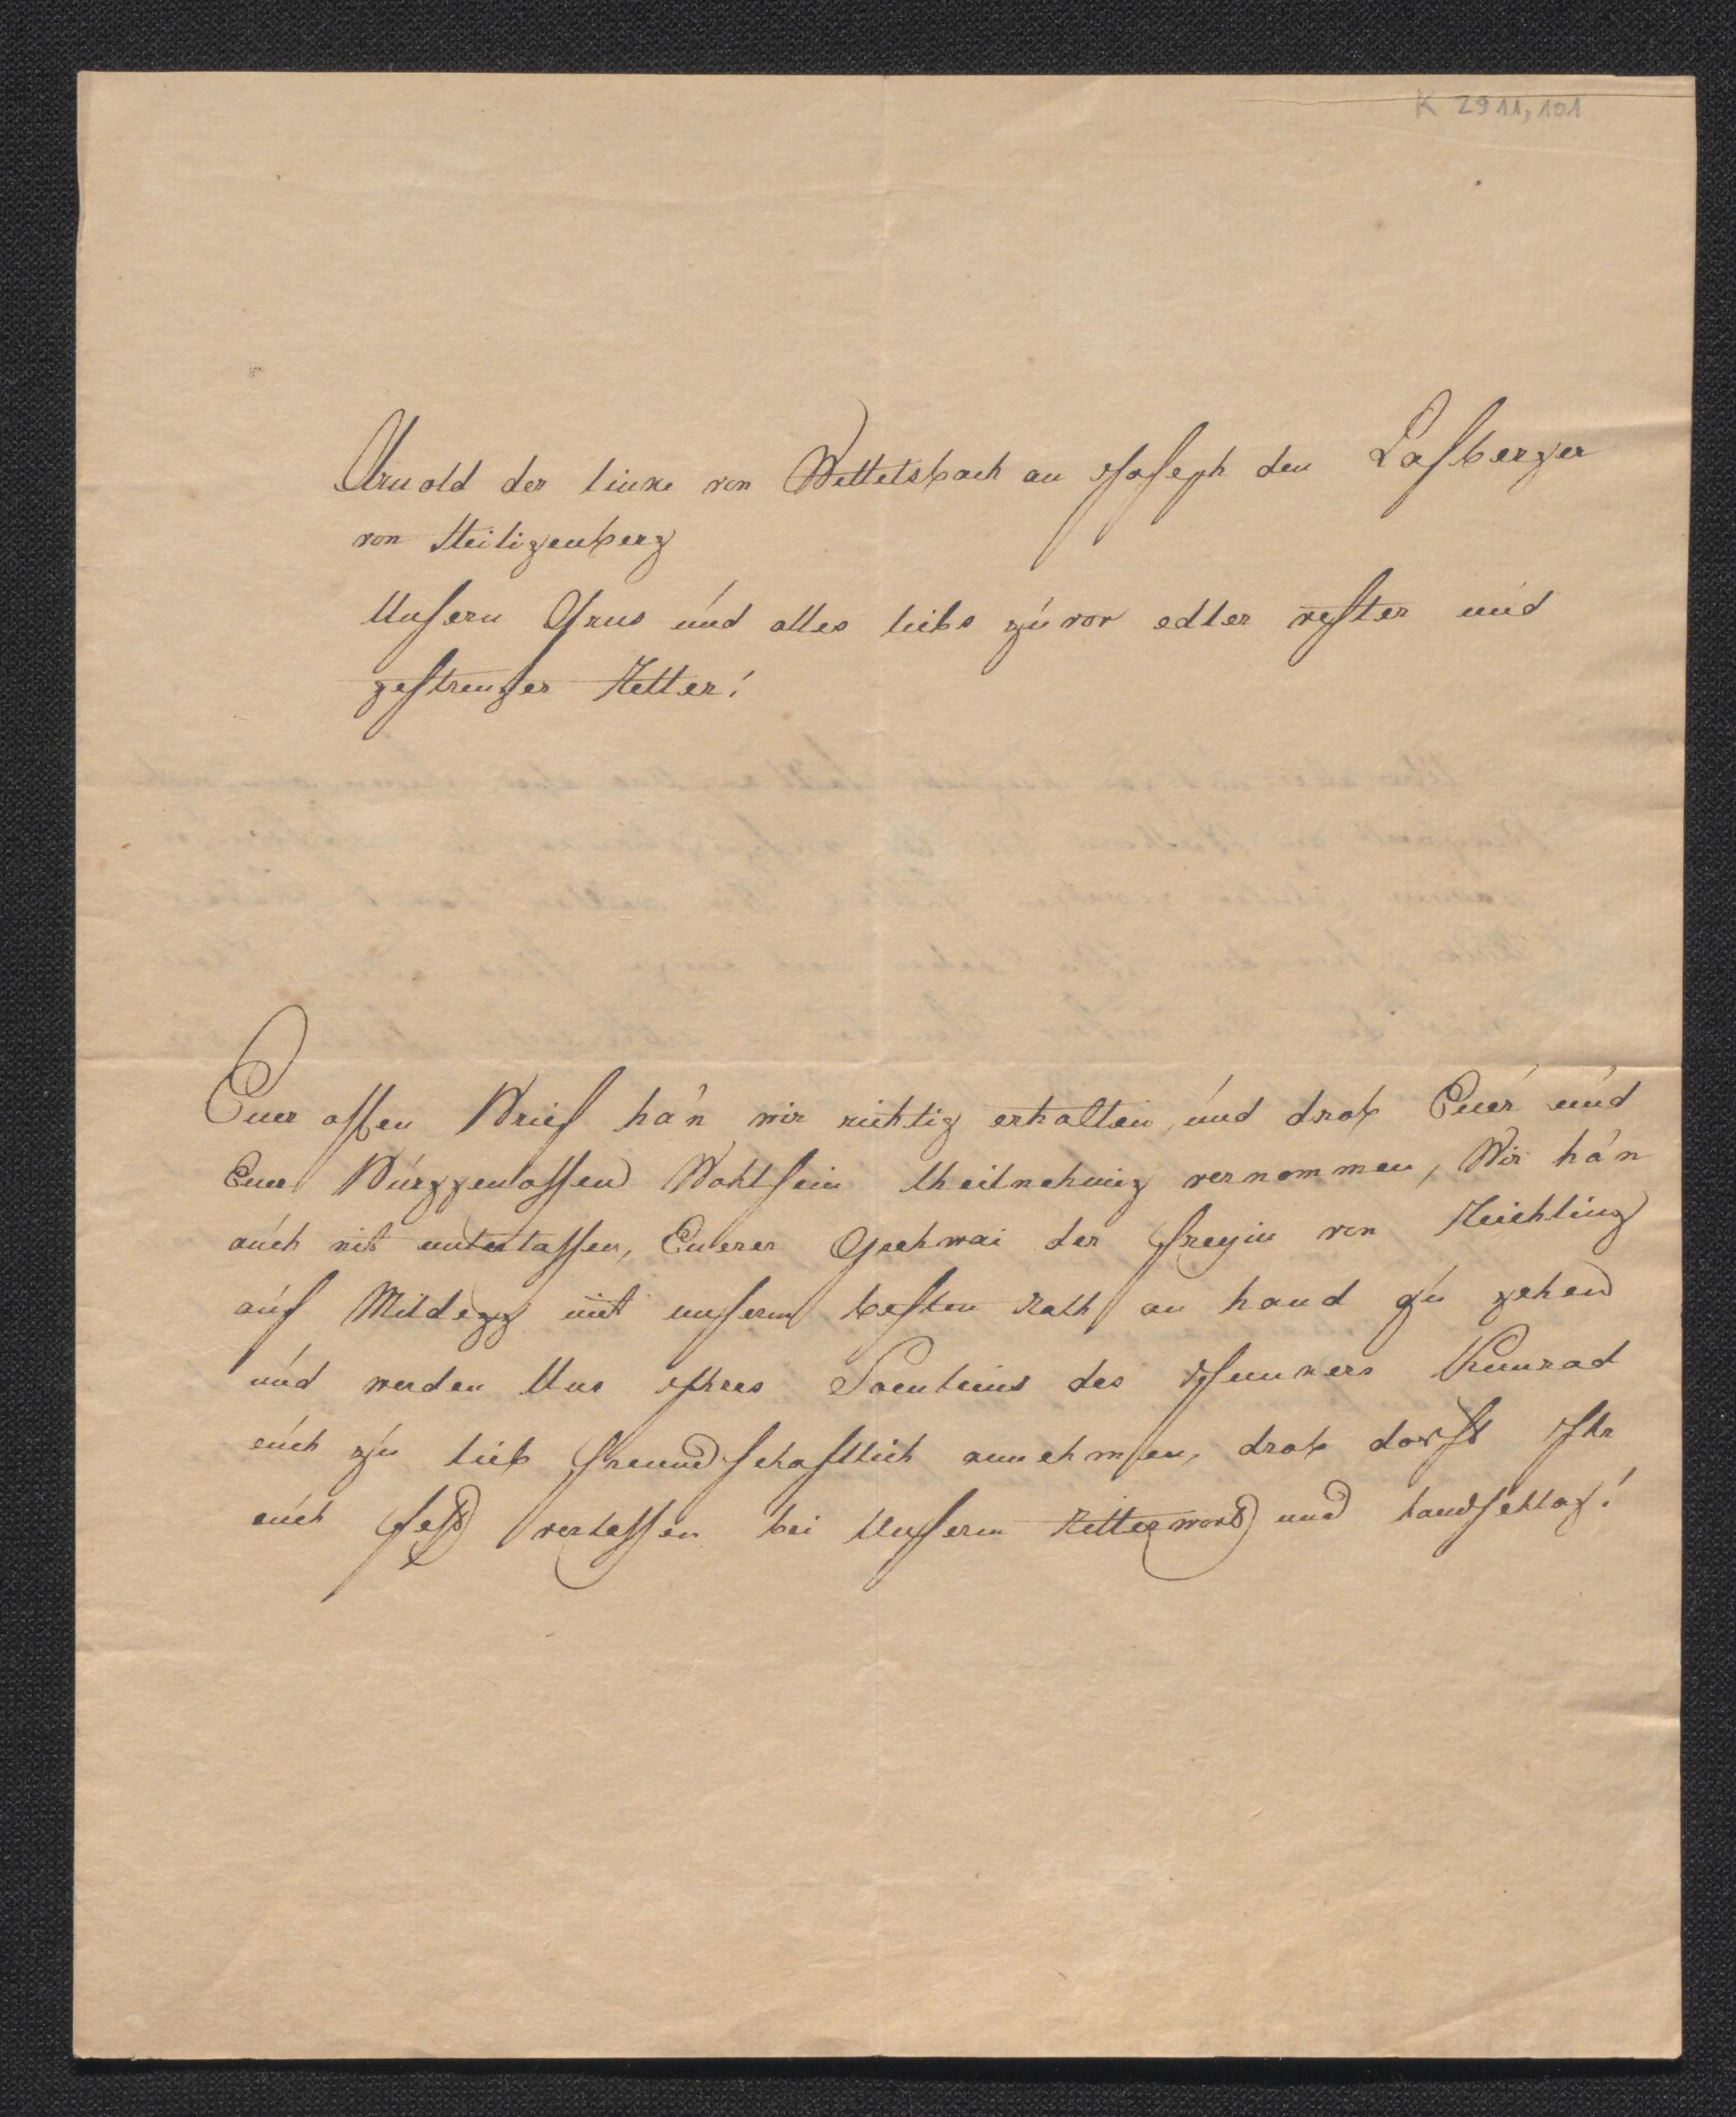 K 2911,101
Arnold der linke von Wettelsbach an Joseph den Laſberger
von Heiligenberg
Unſern Grus und alles liebs zuvor edler veſter und
geſtrenger Retter!
Euer offen Brief han wir richtig erhalten, und drob Euer und
Euer Burggenoſſen Wohlſein theilnehmig vernommen, Wir han
auch nit unterlaſſen, Euerer Geehwai der Freyin von Reichling
auf Mildegg mit unſerm beſten Rath an hand zu gehen
und werden Uns Ihres Soenleins des Junkers Kunrad
euch zu lieb freundſchaftlich annehmen, drob dorft Ihr
euch feſt verlaſſen bei Unſerm Retterwort und handſchlag!